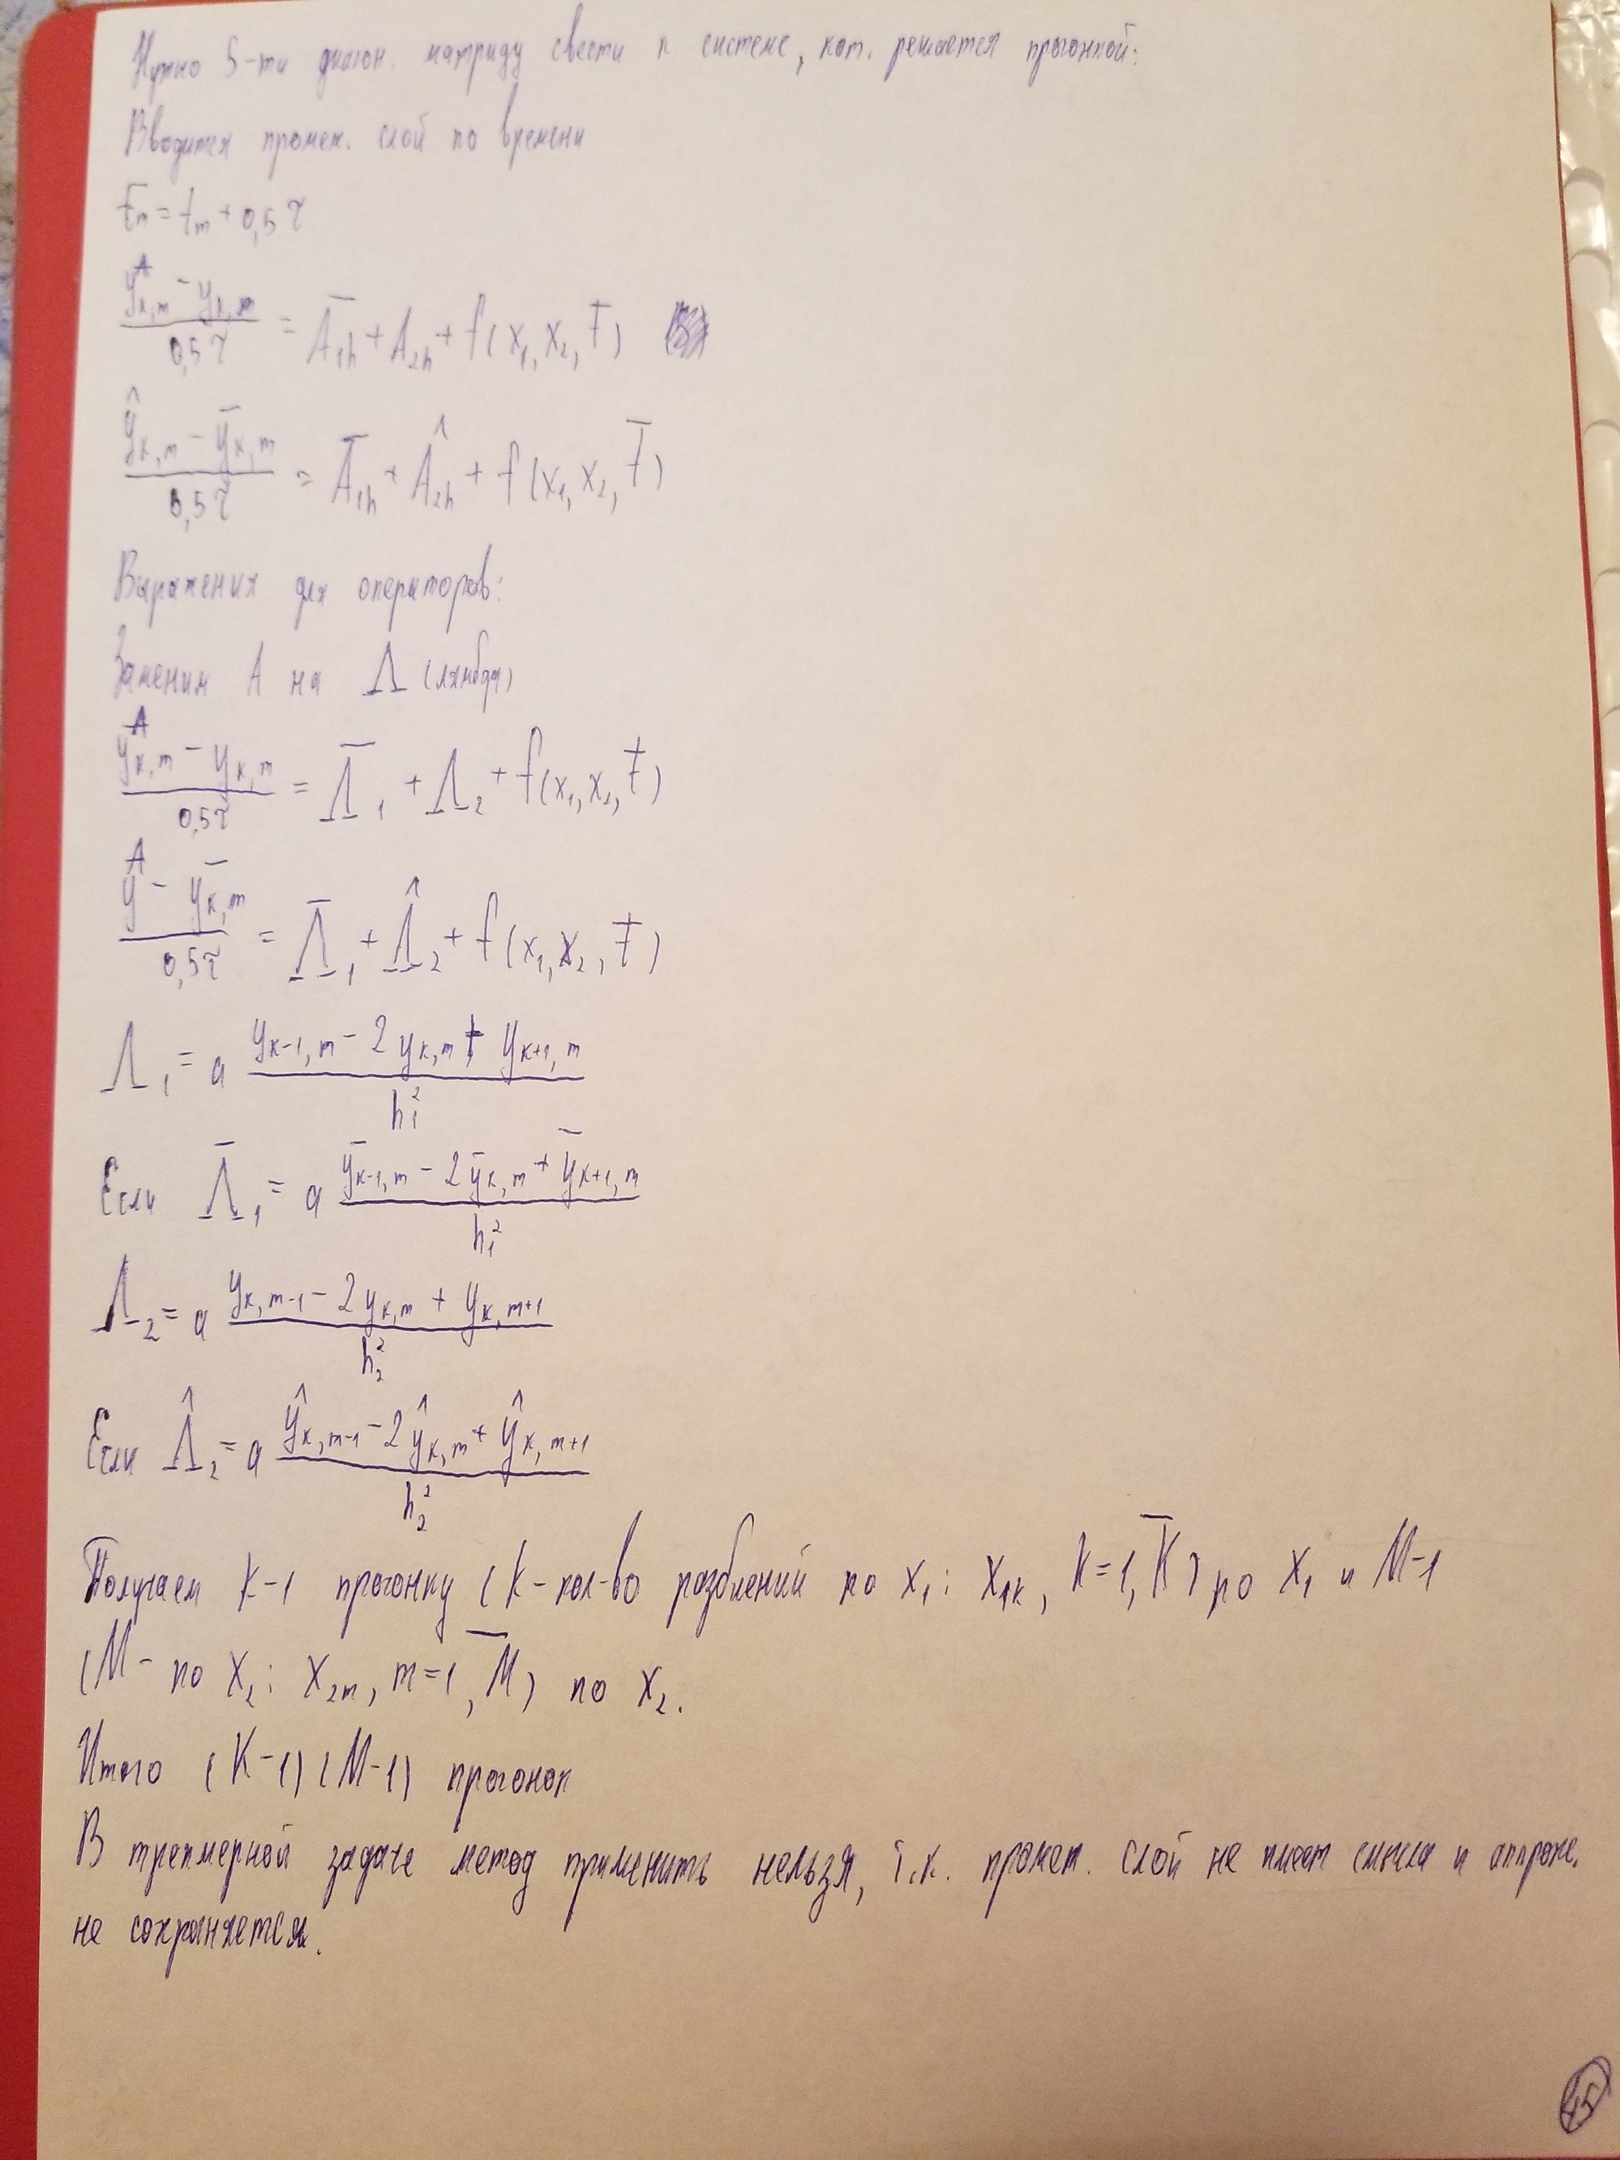 Нужно 5-ти диагон. матрицу свести к системе, кот. решается прогонкой:
Вводится промеж. слой по времени
t̄m = tm + 0,5τ
(ŷk,m − yk,m) / 0,5τ = Ā1h + A2h + f(x1, x2, t̄)
(ŷk,m − ȳk,m) / 0,5τ = Ā1h + Â2h + f(x1, x2, t̄)
Выражения для операторов:
Заменим A на Λ (лямбда)
(ŷk,m − yk,m) / 0,5τ = Λ̄1 + Λ2 + f(x1, x2, t̄)
(ŷ − ȳk,m) / 0,5τ = Λ̄1 + Λ̂2 + f(x1, x2, t̄)
Λ1 = a (yk-1,m − 2yk,m + yk+1,m) / h1²
Если Λ̄1 = a (ȳk-1,m − 2ȳk,m + ȳk+1,m) / h1²
Λ2 = a (yk,m-1 − 2yk,m + yk,m+1) / h2²
Если Λ̂2 = a (ŷk,m-1 − 2ŷk,m + ŷk,m+1) / h2²
Получаем K-1 прогонку (K - кол-во разбиений по x1: x1k, k=1,K̄) по x1 и M-1
(M - по x2: x2m, m=1,M̄) по x2.
Итого (K-1)(M-1) прогонок
В трехмерной задаче метод применить нельзя, т.к. промеж. слой не имеет смысла и аппрокс.
не сохраняется.
45